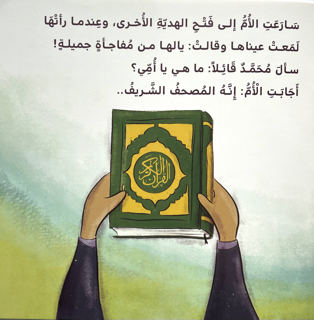 سَارَعَتِ الأُمُّ إلى فَتْحِ الهديّةِ الأُخرى، وعِندما رأتْهَا
لَمَعتْ عيناها وقالتْ: يالها من مُفاجأةٍ جميلةٍ!
سألَ مُحَمَّدٌ قَائِلاً: ما هي يا أُمِّي؟
أجَابَتِ الْأُمُّ: إِنَّهُ المُصحفُ الشَّريفُ..
القرآن الكريم